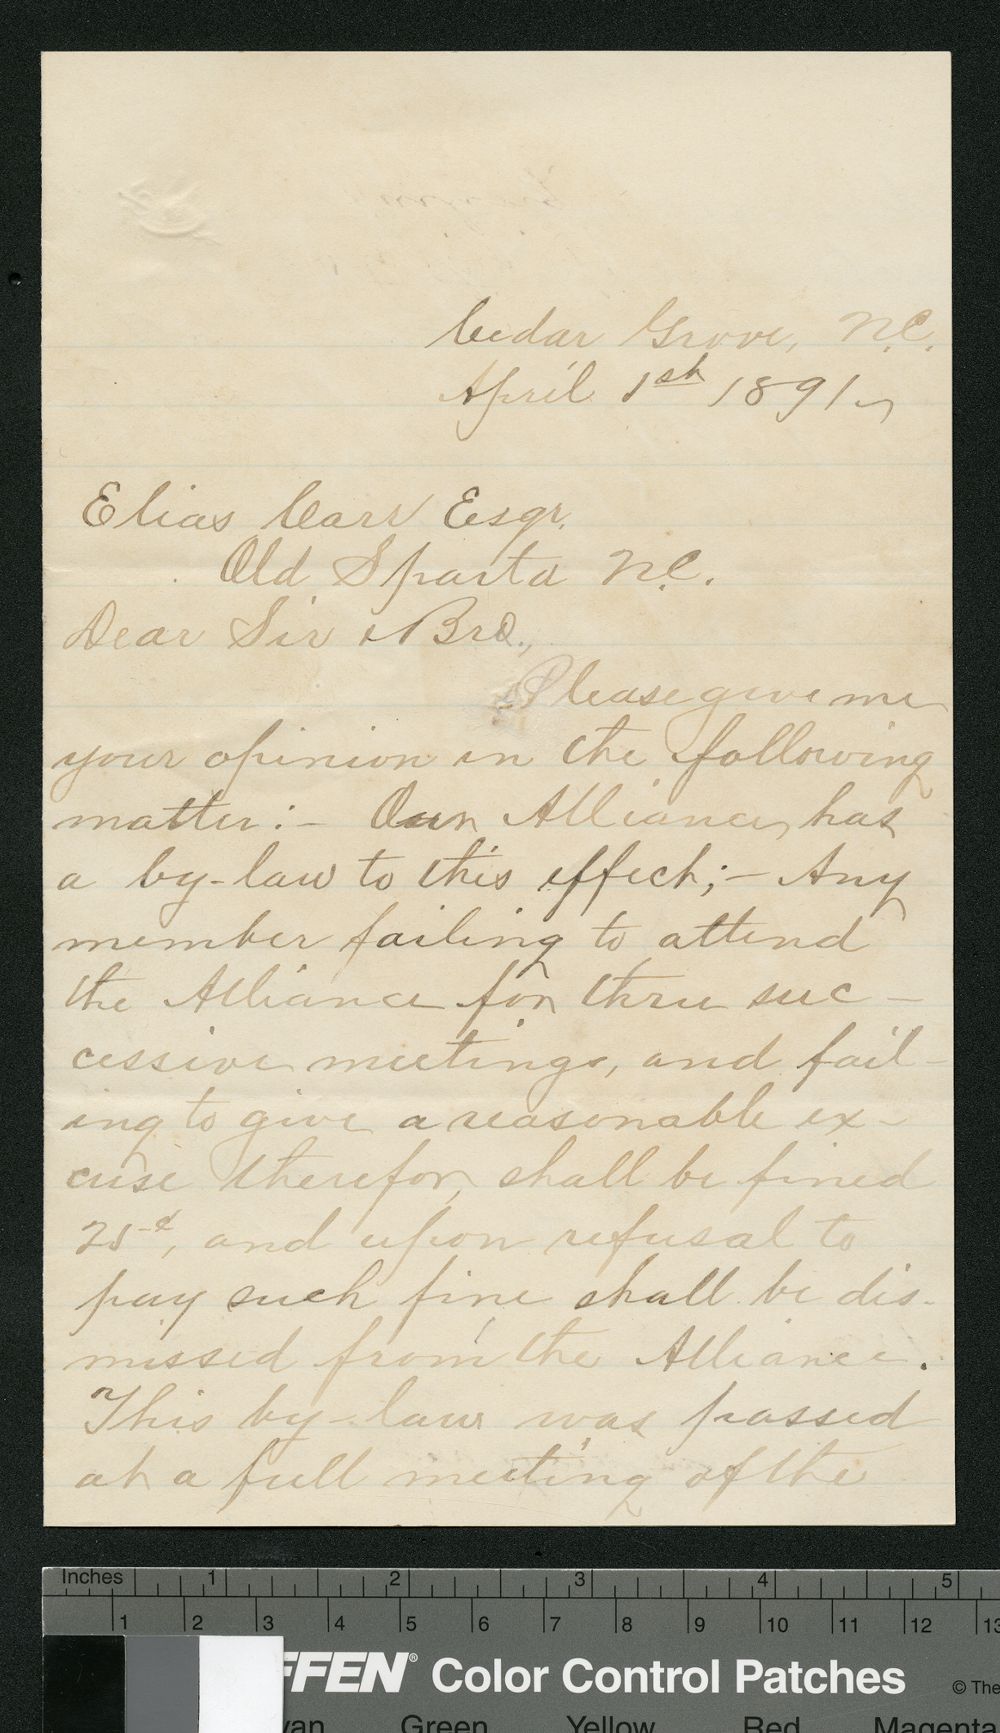 Cedar Grove, N.C.
April 1st 1891
Elias Carr Esqr.
Old Sparta N.C.
Dear Sir & Bro.,
Please give me
your opinion in the following
matter:- Our Alliance has
a by-law to this effect;- Any
member failing to attend
the Alliance for three suc-
cessive meetings, and fail-
ing to give a reasonable ex-
cuse therefor, shall be fined
25¢, and upon refusal to
pay such fine shall be dis-
missed from the Alliance.
This by-law was passed
at a full meeting of the
Inches 1 2 3 4 5
1 2 3 4 5 6 7 8 9 10 11 12 13
FFEN® Color Control Patches © The
yan Green Yellow Red Magenta